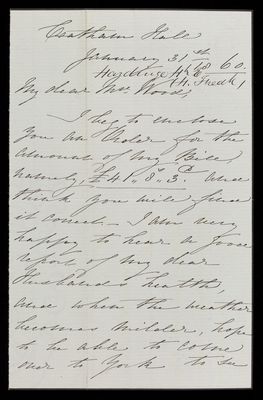 Coatham Hall
January 31st 60.
My dear Mrs Wood,
I beg to enclose
you an Order for the
amount of my Bill,
namely, £41,, 8,, 3d and
think you will find
it correct. I am very
happy to hear so good
report of my dear
Husband's health
and when the weather
becomes milder, hope
to be able to come
over to York to see